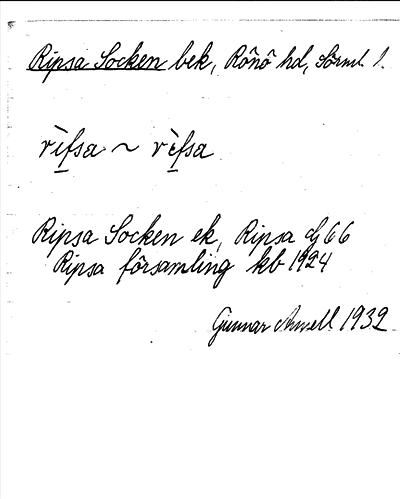 Ripsa Socken bek, Rönö hd, Sörml l.
rìfsa ~ rèfsa
Ripsa Socken ek, Ripsa dj 66
Ripsa församling kb 1924
Gunnar 1932